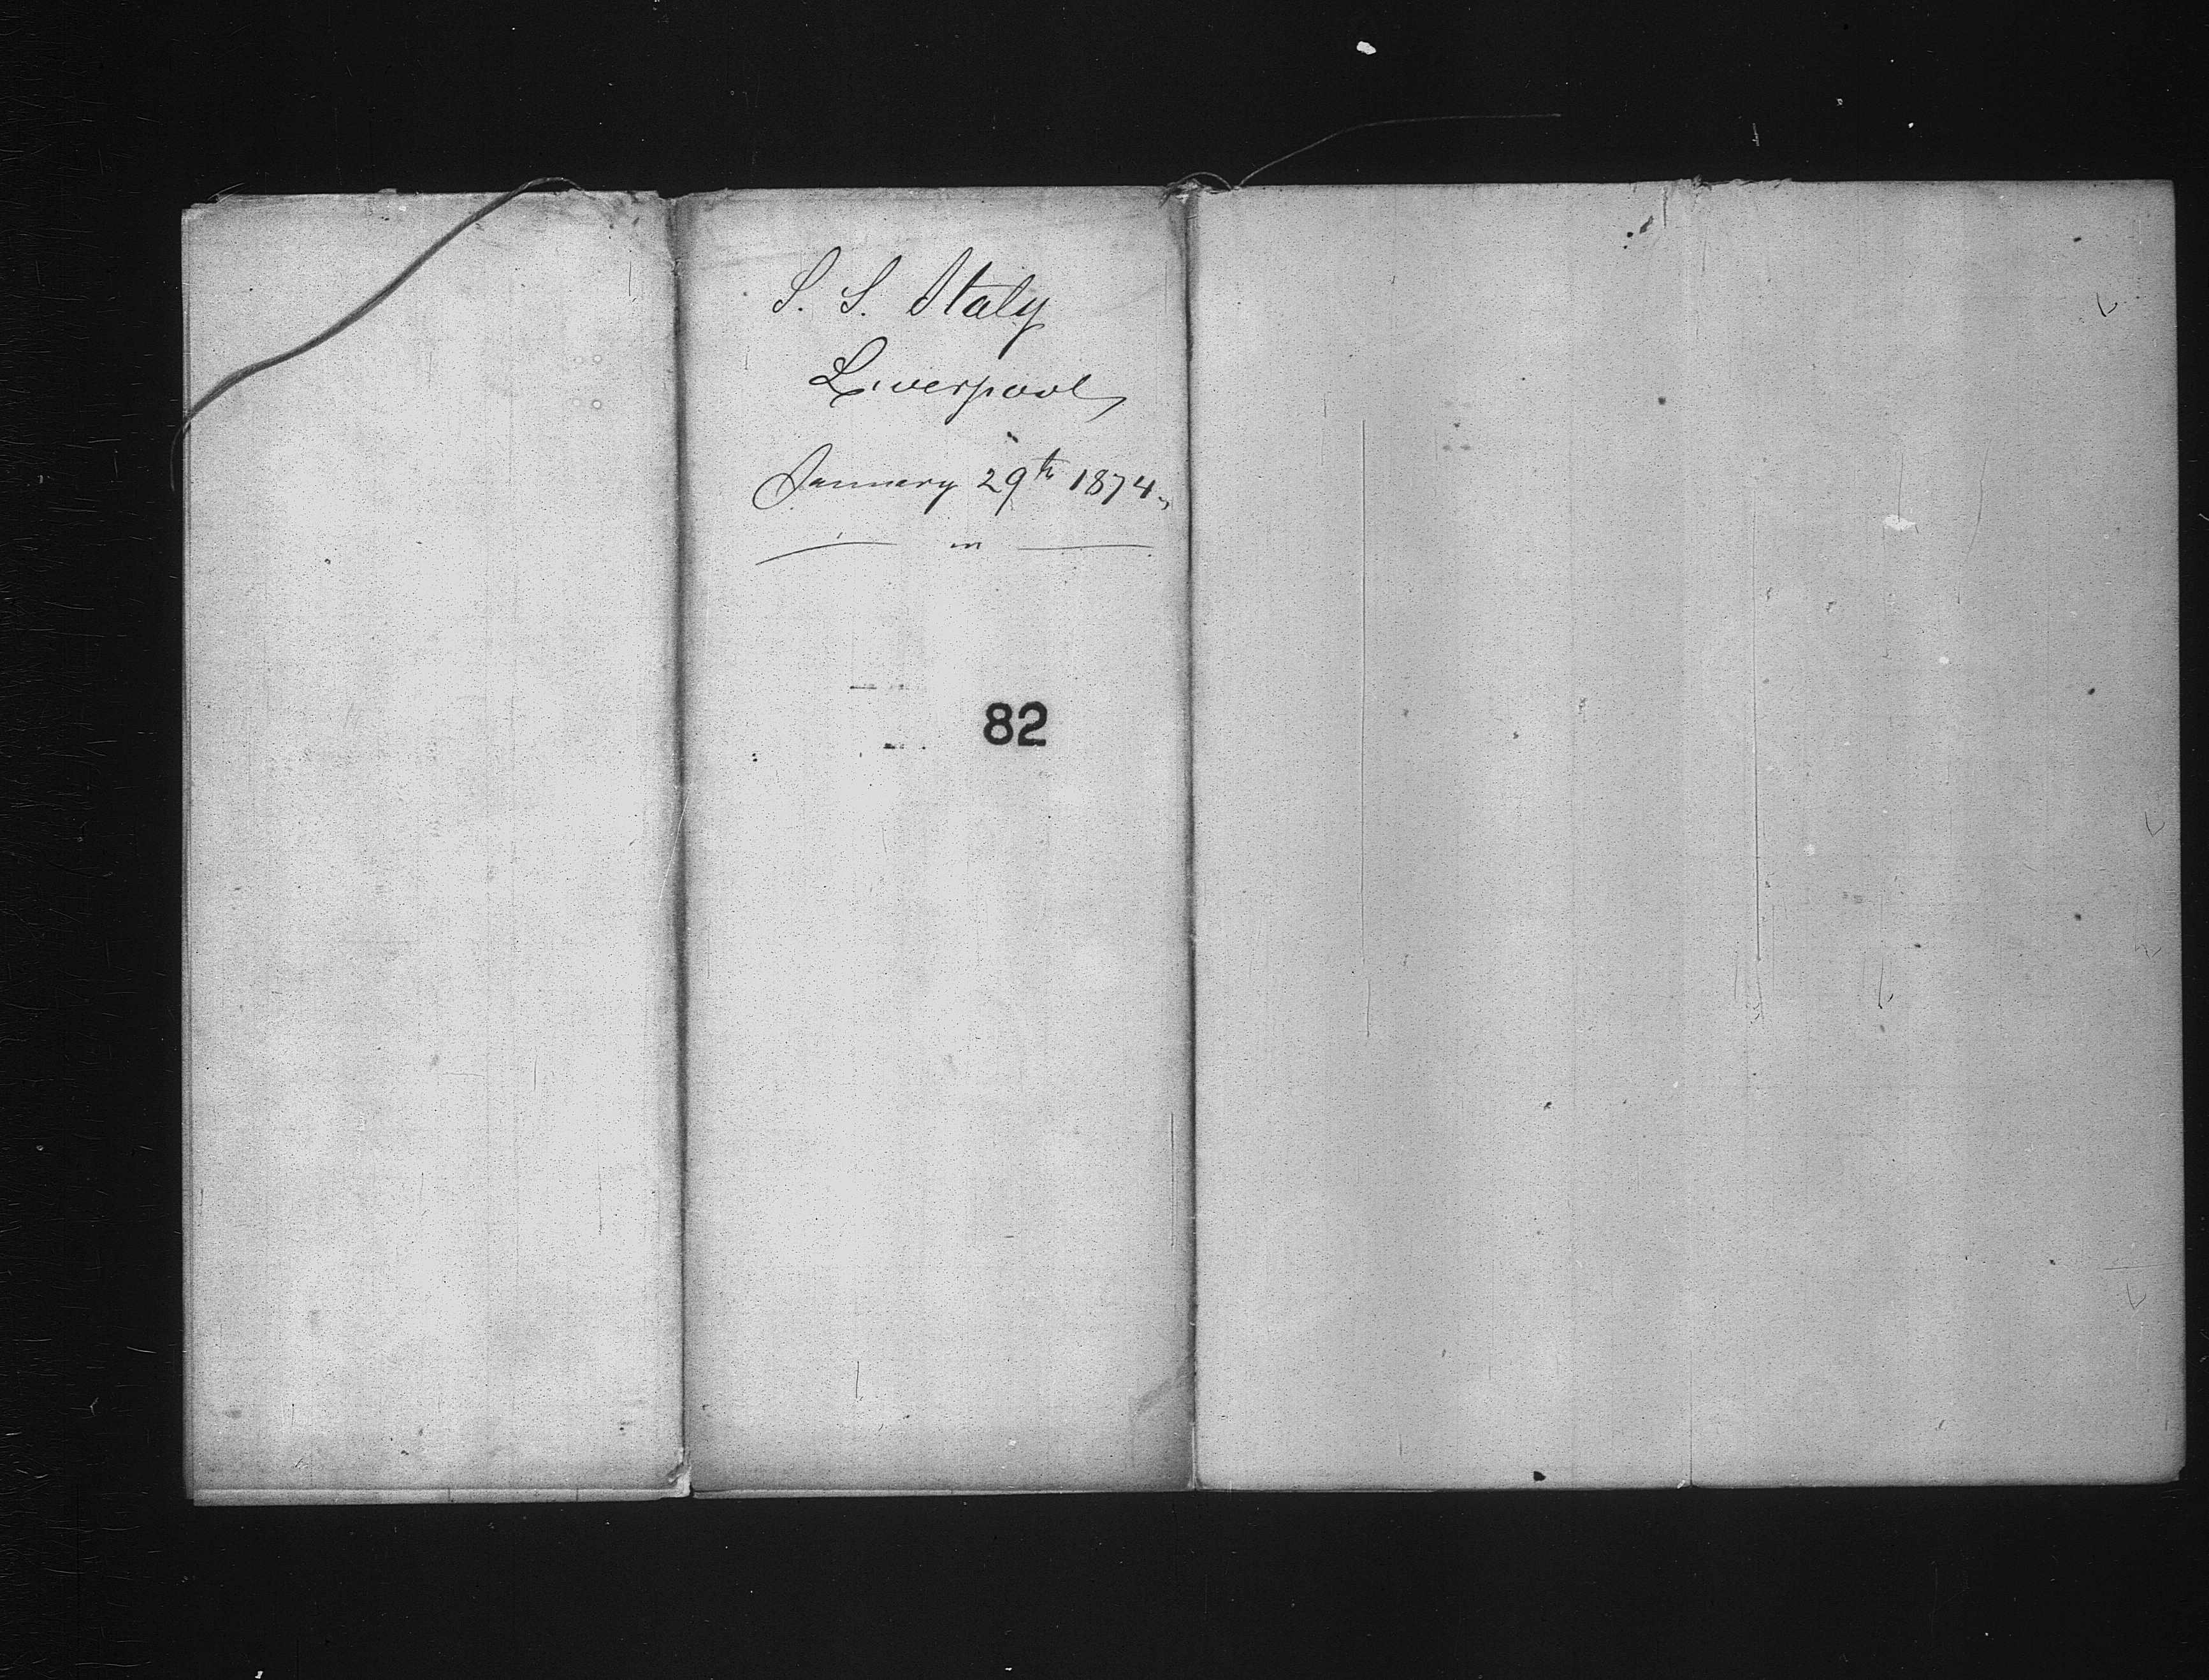 S. S. Italy
Liverpool
January 29th 1874.
82